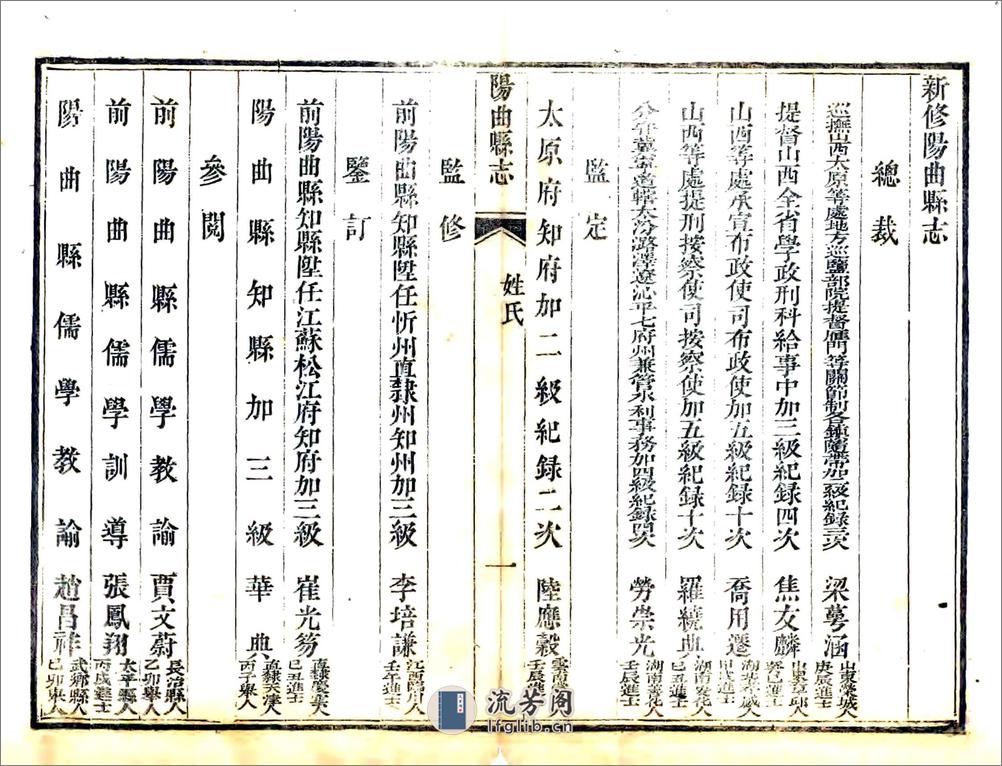 新修陽曲縣志
總裁
巡撫山西太原等處地方巡鹽部院提督雁門等關節制各鎮鹽帶加二級紀錄三次 梁萼涵 山東榮城人 庚辰進士
提督山西全省學政刑科給事中加三級紀錄四次 焦友麟 山東章邱人 癸巳進士
山西等處承宣布政使司布政使加五級紀錄十次 喬用遷 湖北孝感人 甲戌進士
山西等處提刑按察使司按察使加五級紀錄十次 羅繞典 湖南安化人 己丑進士
分守冀寧道轄太汾潞澤遼沁平七府州兼管水利事務加四級紀錄四次 勞崇光 湖南善化人 壬辰進士
監定
太原府知府加二級紀錄二次 陸應穀 雲南 壬辰進士
陽曲縣志 姓氏 一
監修
前陽曲縣知縣陞任忻州直隸州知州加三級 李培謙 江西 人 壬午進士
鑒訂
前陽曲縣知縣陞任江蘇松江府知府加三級 崔光笏 直隸慶雲人 己丑進士
陽曲縣知縣加三級 華典 直隸天津人 丙子舉人
參閱
前陽曲縣儒學教諭 賈文蔚 長治縣人 乙卯舉人
前陽曲縣儒學訓導 張鳳翔 太平縣人 丙戌進士
陽曲縣儒學教諭 趙昌祥 武鄉縣人 己卯舉人
流芳阁
lfglib.cn